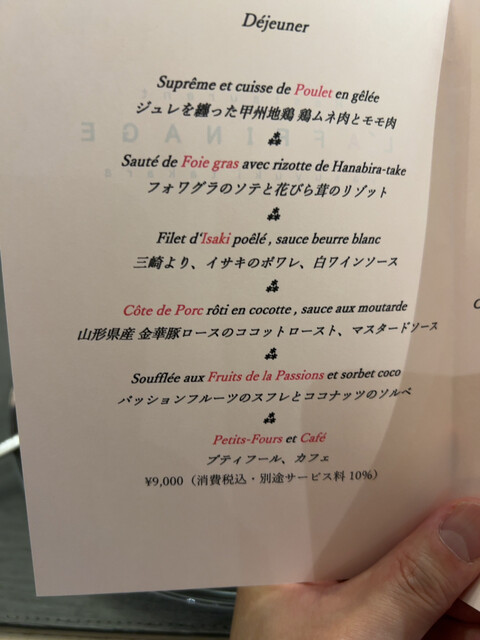 Déjeuner
Suprême et cuisse de Poulet en gêlée
ジュレを纏った甲州地鶏 鶏ムネ肉とモモ肉
Sauté de Foie gras avec rizotte de Hanabira-take
フォワグラのソテと花びら茸のリゾット
Filet d'Isaki poêlé , sauce beurre blanc
三崎より、イサキのポワレ、白ワインソース
Côte de Porc rôti en cocotte , sauce aux moutarde
山形県産 金華豚ロースのココットロースト、マスタードソース
Soufflée aux Fruits de la Passions et sorbet coco
パッションフルーツのスフレとココナッツのソルベ
Petits-Fours et Café
プティフール、カフェ
¥9,000（消費税込・別途サービス料 10%）